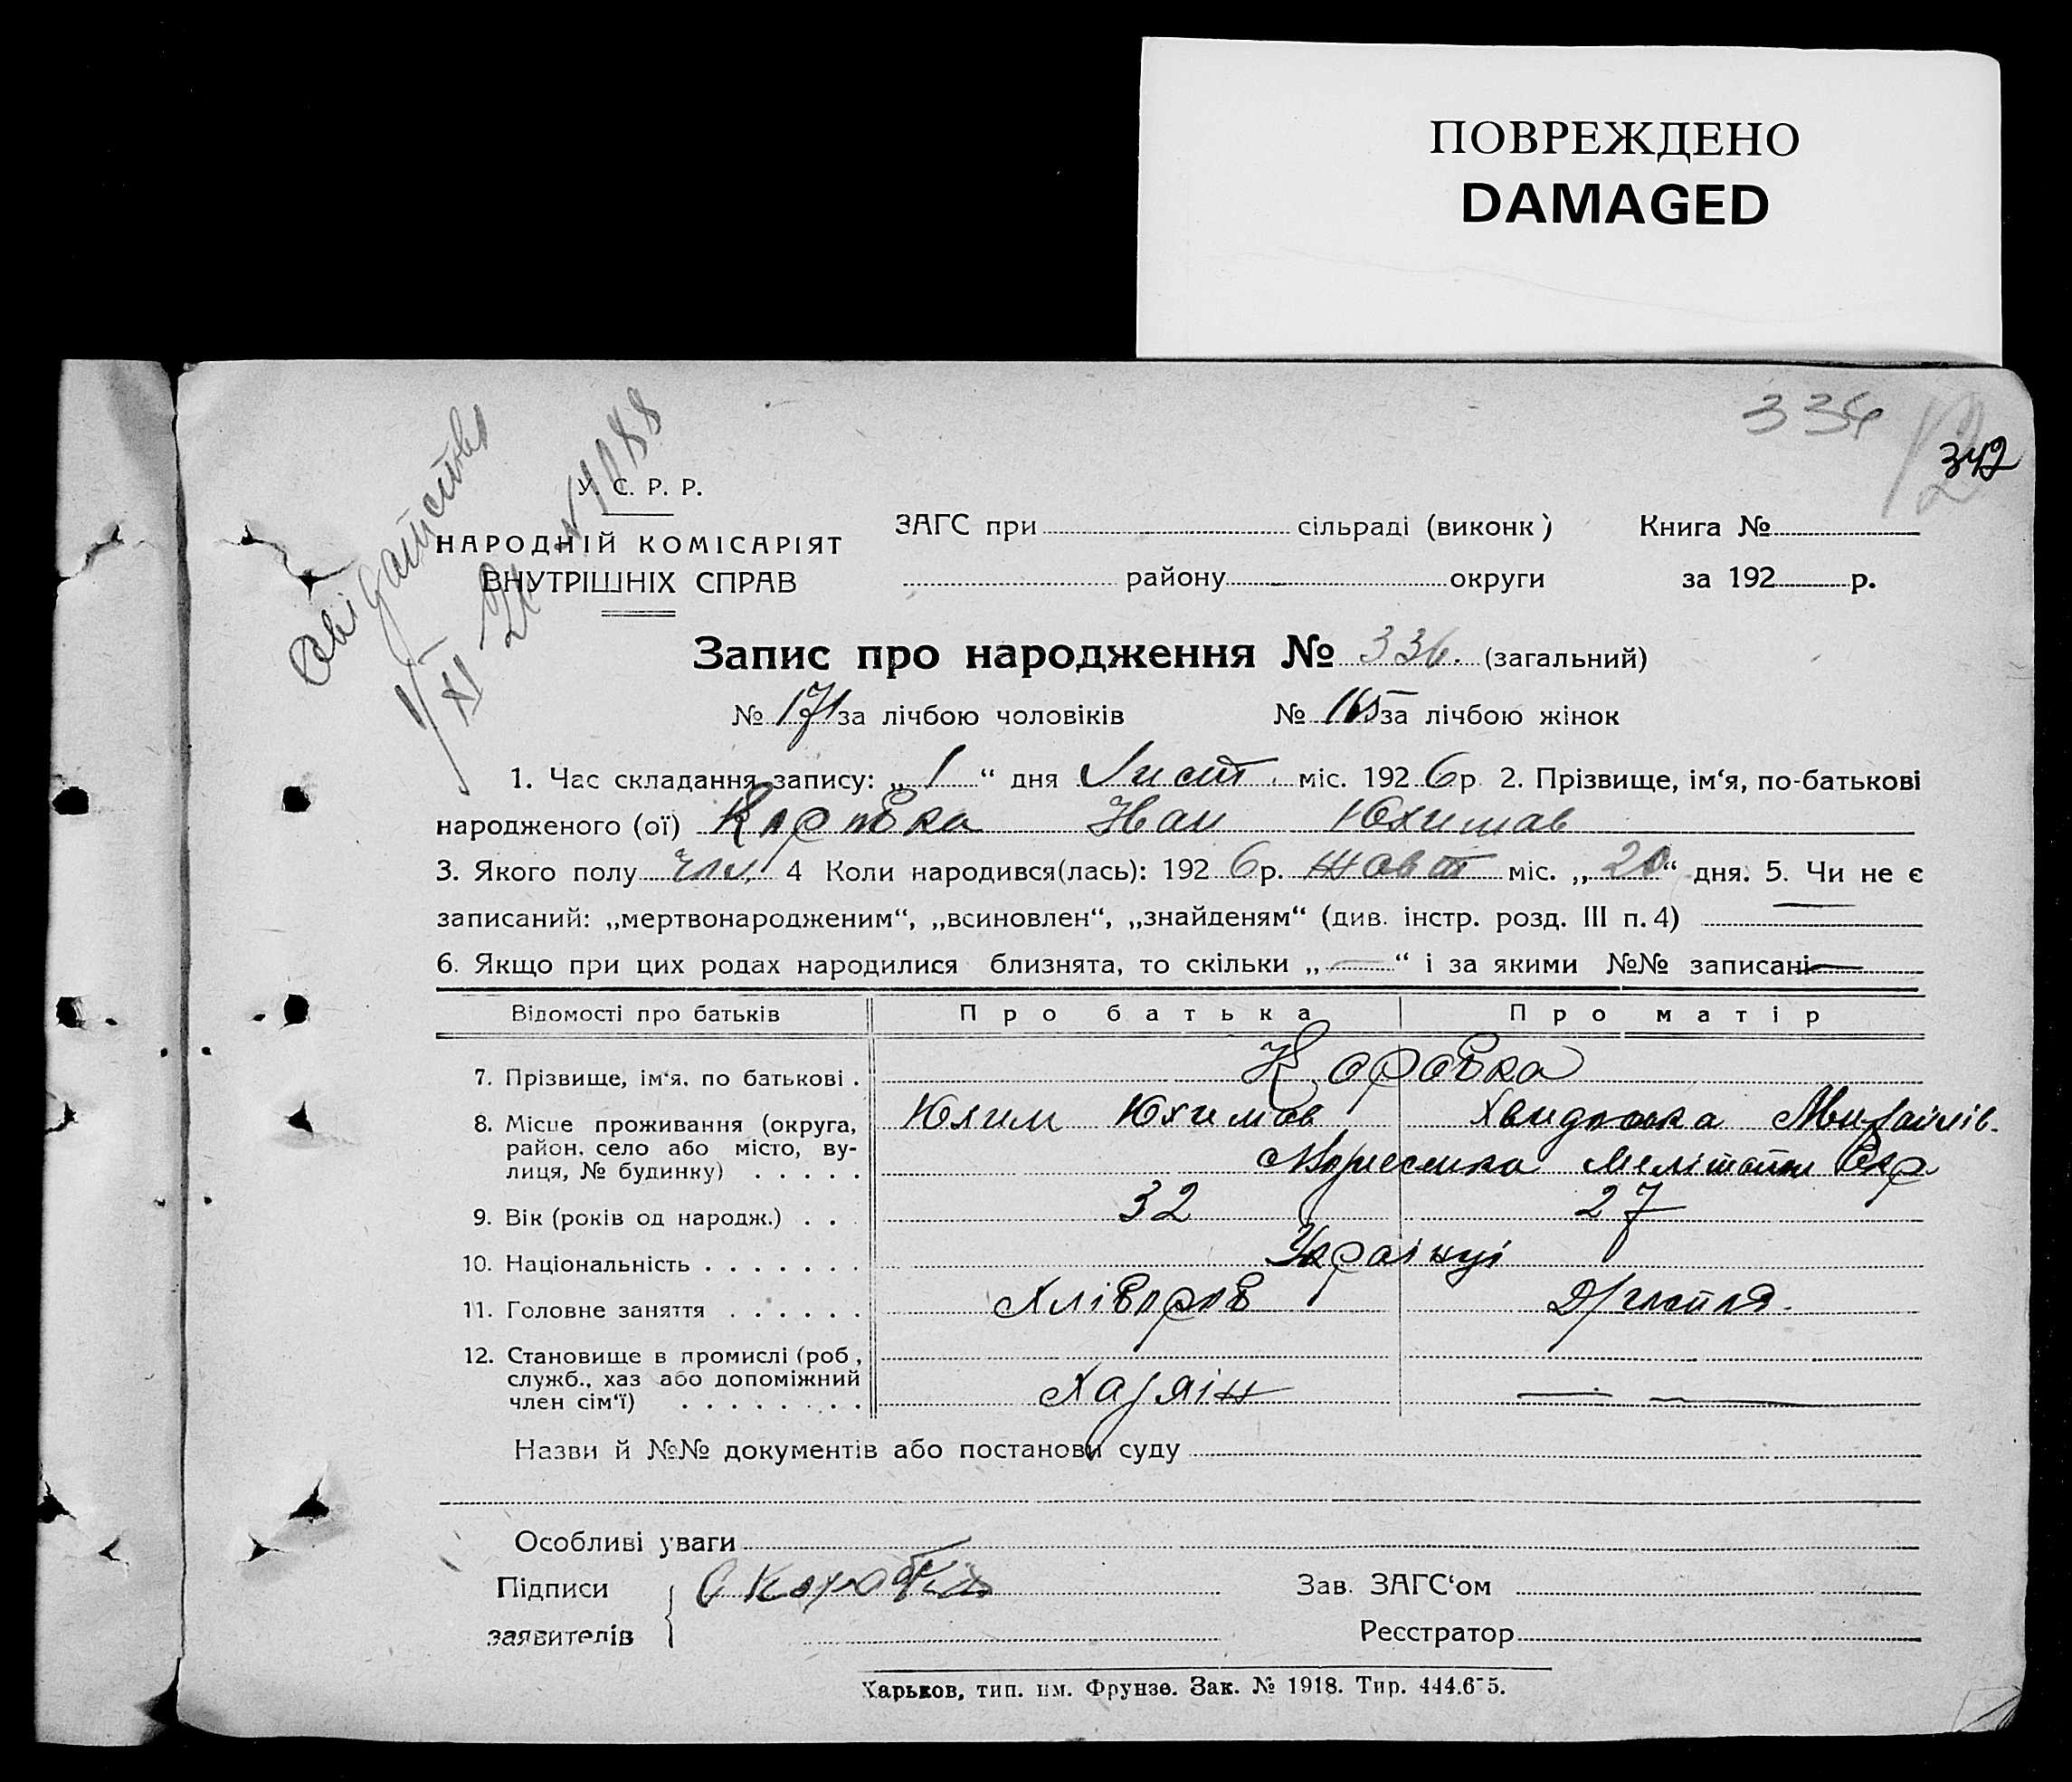 ПОВРЕЖДЕНО
DAMAGED
334
12
342
Свідатство
1/XI-26 №1088
У. С. Р. Р.
НАРОДНІЙ КОМІСАРІЯТ
ВНУТРІШНІХ СПРАВ
ЗАГС при сільраді (виконк) Книга №
району округи за 192 р.
Запис про народження № 336. (загальний)
№ 171 за лічбою чоловіків № 165 за лічбою жінок
1. Час складання запису: „1“ дня Лист. міс. 1926 р. 2. Прізвище, ім‘я, по-батькові
народженого (ої) Іван Юхимов
3. Якого полу чол. 4 Коли народився(лась): 1926 р. Жовт міс. „20“ дня. 5. Чи не є
записаний: „мертвонародженим“, „всиновлен“, „знайденям“ (див. інстр. розд. III п. 4) —
6. Якщо при цих родах народилися близнята, то скільки „—“ і за якими №№ записані —
Відомості про батьків Про батька Про матір
7. Прізвище, ім‘я, по батькові .
8. Місце проживання (округа, Юхим Юхимов Михайлів.
район, село або місто, ву-
лиця, № будинку) . . . . . Мелітоп Окр
9. Вік (років од народж.) . . . 32 27
10. Національність . . . . . . . Українці
11. Головне заняття . . . . . . Хлібороб
12. Становище в промислі (роб.,
служб., хаз або допоміжний
член сім‘ї) . . . . . . . . Хазяїн — —
Назви й №№ документів або постанови суду
Особливі уваги
Підписи Зав. ЗАГС‘ом
заявителів Реєстратор
Харьков, тип. им. Фрунзе. Зак. № 1918. Тир. 444.675.